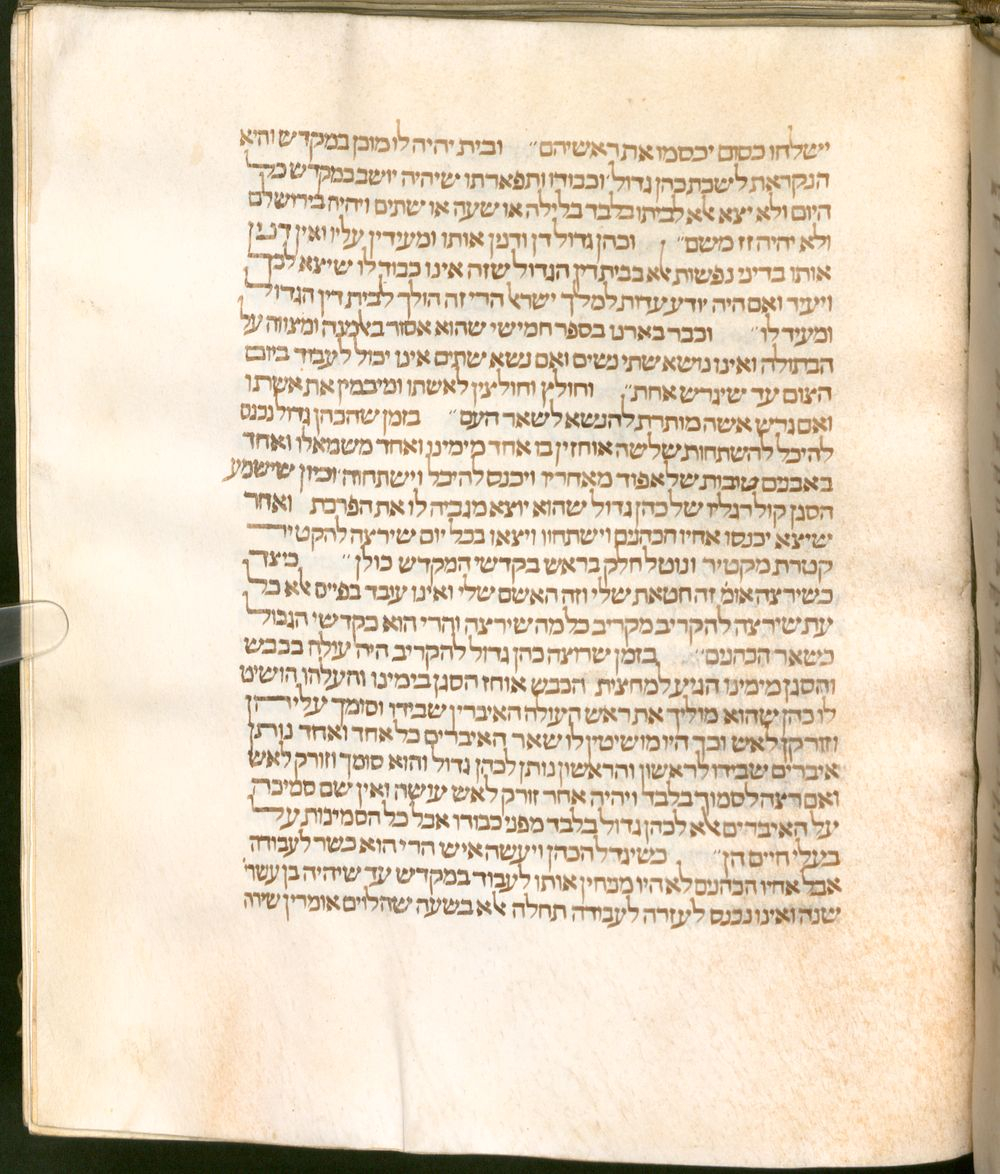 ישלחו כסום יכסמו את ראשיהם״ ובית יהיה לו מוכן במקדש והיא
הנקראת לישכת כהן גדול׳ וכבודו ותפארתו שיהיה יושב במקדש כל
היום ולא יצא אלא לביתו בלבד בלילה או שעה או שתים ויהיה בירושלם
ולא יהיה זז משם״ וכהן גדול דן ודנין אותו ומעידין עליו ואין דנין
אותו בדיני נפשות אלא בבית דין הגדול שזה אינו כבוד לו שיצא לכך
ויעיד ואם היה יודע עדות למלך ישראל הרי זה הולך לבית דין הגדול
ומעיד לו״ וכבר בארנו בספר חמישי שהוא אסור באלמנה ומצווה על
הבתולה ואינו נושא שתי נשים ואם נשא שתים אינו יכול לעבוד ביום
הצום עד שיגרש אחת״ וחולץ וחולצין לאשתו ומיבמין את אשתו
ואם גרש אשה מותרת להנשא לשאר העם״ בזמן שהכהן גדול נכנס
להיכל להשתחות שלשה אוחזין בו אחד מימינו ואחד משמאלו ואחד
באבנים טובות של אפוד מאחריו ויכנס להיכל וישתחוה וכיון שישמע
הסגן קול רגליו של כהן גדול שהוא יוצא מגביה לו את הפרכת ואחר
שיצא יכנסו אחיו הכהנים וישתחוו ויצאו בכל יום שירצה להקטיר
קטרת מקטיר ונוטל חלק בראש בקדשי המקדש כולן״ כיצד
כשירצה אומ׳ זה חטאת שלי וזה האשם שלי ואינו עובד בפייס אלא כל
עת שירצה להקריב מקריב כל מה שירצה והרי הוא בקדשי הגבול
כשאר הכהנים״ בזמן שרוצה כהן גדול להקריב היה עולה בכבש
והסגן מימינו הגיע למחצית הכבש אוחז הסגן בימינו והעלהו הושיט
לו כהן שהוא מוליך את ראש העולה האיברין שבידו וסומך עליהן
וזורקן לאש וכך היו מושיטין לו שאר האיברים כל אחד ואחד נותן
איברים שבידו לראשון והראשון נותן לכהן גדול והוא סומך וזורק לאש
ואם רצה לסמוך בלבד ויהיה אחר זורק לאש עושה ואין שם סמיכה
על האיברים אלא לכהן גדול בלבד מפני כבודו אבל כל הסמיכות על
בעלי חיים הן״ כשיגדל הכהן ויעשה איש הרי הוא כשר לעבודה
אבל אחיו הכהנים לא היו מניחין אותו לעבוד במקדש עד שיהיה בן עשרי׳
שנה ואינו נכנס לעזרה לעבודה תחלה אלא בשעה שהלוים אומרין שירה